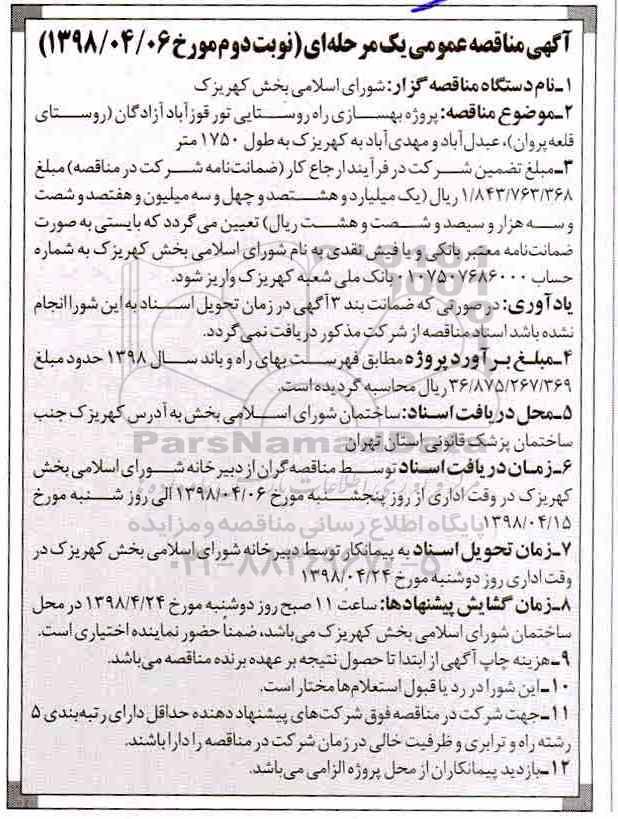 آگهی مناقصه عمومی یک مرحله‌ای (نوبت دوم مورخ ۱۳۹۸/۰۴/۰۶)
۱ـ نام دستگاه مناقصه گزار: شورای اسلامی بخش کهریزک
۲ـ موضوع مناقصه: پروژه بهسازی راه روستایی تورقوزآباد آزادگان (روستای
قلعه پروان)، عبدل‌آباد و مهدی‌آباد به کهریزک به طول ۱۷۵۰ متر
۳ـ مبلغ تضمین شرکت در فرآیند ارجاع کار (ضمانت‌نامه شرکت در مناقصه) مبلغ
۱/۸۴۳/۷۶۳/۳۶۸ ریال (یک میلیارد و هشتصد و چهل و سه میلیون و هفتصد و شصت
و سه هزار و سیصد و شصت و هشت ریال) تعیین می‌گردد که بایستی به صورت
ضمانت‌نامه معتبر بانکی و یا فیش نقدی به نام شورای اسلامی بخش کهریزک به شماره
حساب ۰۱۰۷۵۰۷۶۸۶۰۰۰ بانک ملی شعبه کهریزک واریز شود.
یادآوری: در صورتی که ضمانت بند ۳ آگهی در زمان تحویل اسناد به این شورا انجام
نشده باشد اسناد مناقصه از شرکت مذکور دریافت نمی‌گردد.
۴ـ مبلغ برآورد پروژه مطابق فهرست بهای راه و باند سال ۱۳۹۸ حدود مبلغ
۳۶/۸۷۵/۲۶۷/۳۶۹ ریال محاسبه گردیده است.
۵ـ محل دریافت اسناد: ساختمان شورای اسلامی بخش به آدرس کهریزک جنب
ساختمان پزشک قانونی استان تهران
۶ـ زمان دریافت اسناد توسط مناقصه‌گران از دبیرخانه شورای اسلامی بخش
کهریزک در وقت اداری از روز پنجشنبه مورخ ۱۳۹۸/۰۴/۰۶ الی روز شنبه مورخ
۱۳۹۸/۰۴/۱۵
۷ـ زمان تحویل اسناد به پیمانکار توسط دبیرخانه شورای اسلامی بخش کهریزک در
وقت اداری روز دوشنبه مورخ ۱۳۹۸/۰۴/۲۴
۸ـ زمان گشایش پیشنهادها: ساعت ۱۱ صبح روز دوشنبه مورخ ۱۳۹۸/۴/۲۴ در محل
ساختمان شورای اسلامی بخش کهریزک می‌باشد، ضمناً حضور نماینده اختیاری است.
۹ـ هزینه چاپ آگهی از ابتدا تا حصول نتیجه بر عهده برنده مناقصه می‌باشد.
۱۰ـ این شورا در رد یا قبول استعلام‌ها مختار است.
۱۱ـ جهت شرکت در مناقصه فوق شرکت‌های پیشنهاد دهنده حداقل دارای رتبه‌بندی ۵
رشته راه و ترابری و ظرفیت خالی در زمان شرکت در مناقصه را دارا باشند.
۱۲ـ بازدید پیمانکاران از محل پروژه الزامی می‌باشد.
ParsNamadData
پایگاه اطلاع رسانی مناقصه و مزایده